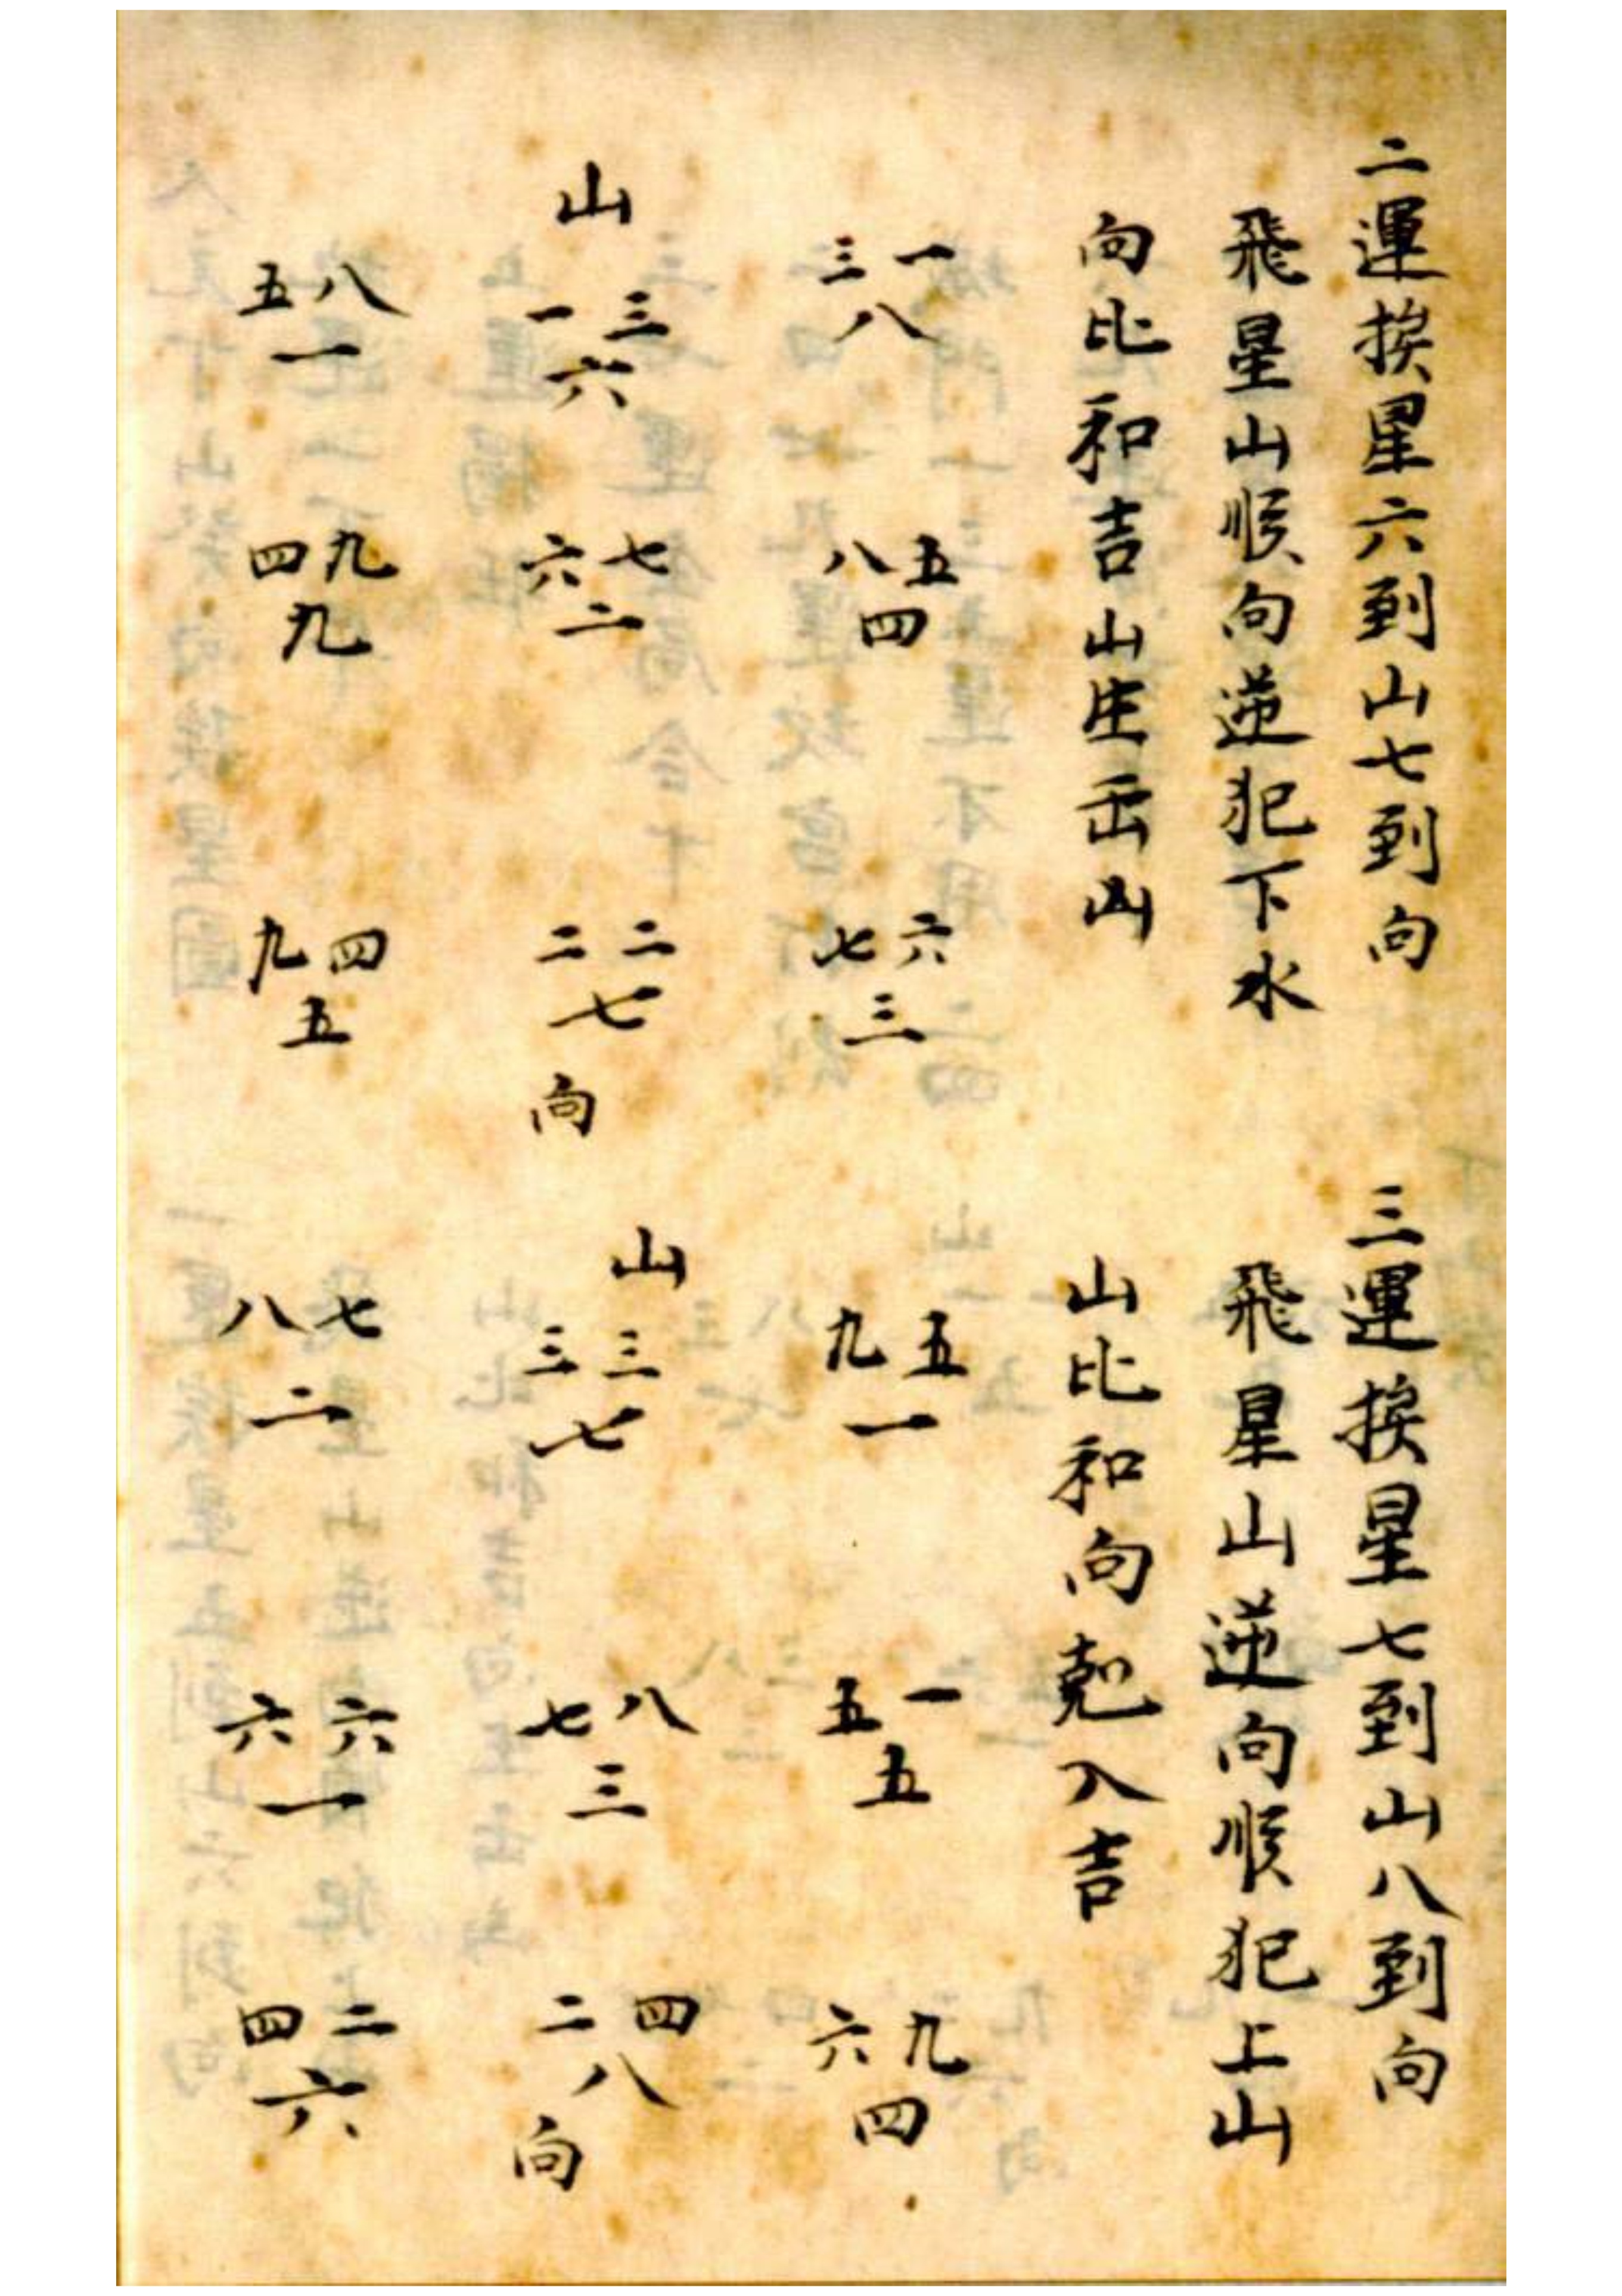 二運挨星六到山七到向
飛星山順向逆犯下水
向比和吉山生出凶
三一
八
八五
四
七六
三
山
一三
六
六七
二
二二
七
向
五八
一
四九
九
九四
五
三運挨星七到山八到向
飛星山逆向順犯上山
山比和向剋入吉
九五
一
五一
五
六九
四
山
三三
七
七八
三
二四
八
向
八七
二
六六
一
四二
六